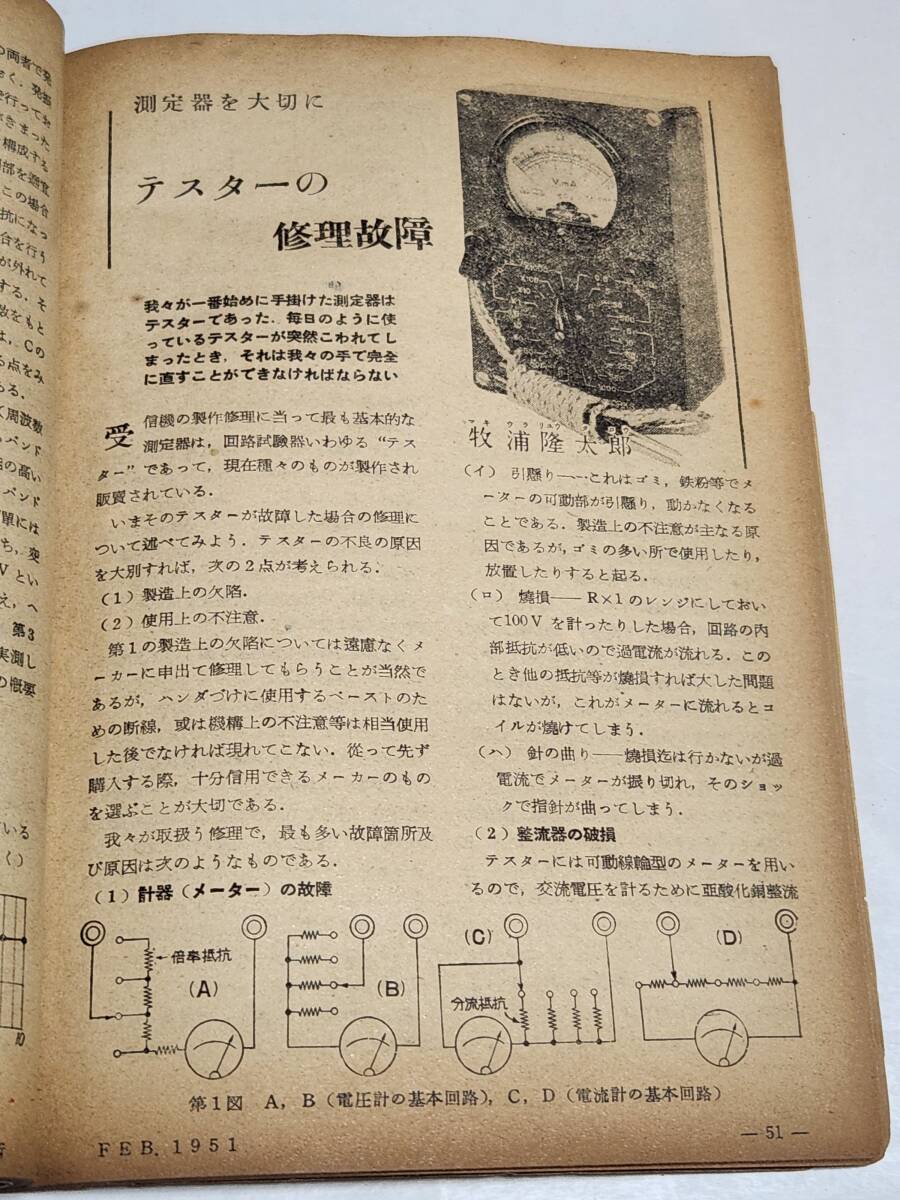 測定器を大切に
テスターの
修理故障
我々が一番始めに手掛けた測定器は
テスターであった．毎日のように使
っているテスターが突然こわれてし
まったとき，それは我々の手で完全
に直すことができなければならない
牧浦隆太郎
受信機の製作修理に当って最も基本的な
測定器は，回路試験器いわゆる“テス
ター”であって，現在種々のものが製作され
販賣されている．
いまそのテスターが故障した場合の修理に
ついて述べてみよう．テスターの不良の原因
を大別すれば，次の２点が考えられる．
（１）製造上の欠陥．
（２）使用上の不注意．
第１の製造上の欠陥については遠慮なくメ
ーカーに申出て修理してもらうことが当然で
あるが，ハンダづけに使用するペーストのた
めの断線，或は機構上の不注意等は相当使用
した後でなければ現れてこない．從って先ず
購入する際，十分信用できるメーカーのもの
を選ぶことが大切である．
我々が取扱う修理で，最も多い故障箇所及
び原因は次のようなものである．
（１）計器（メーター）の故障
（イ）引懸り――これはゴミ，鉄粉等でメ
ーターの可動部が引懸り，動かなくなる
ことである．製造上の不注意が主なる原
因であるが，ゴミの多い所で使用したり，
放置したりすると起る．
（ロ）燒損――R×1のレンジにしておい
て100Vを計ったりした場合，回路の内
部抵抗が低いので過電流が流れる．この
とき他の抵抗等が燒損すれば大した問題
はないが，これがメーターに流れるとコ
イルが燒けてしまう．
（ハ）針の曲り――燒損迄は行かないが過
電流でメーターが振り切れ，そのショッ
クで指針が曲ってしまう．
（２）整流器の破損
テスターには可動線輪型のメーターを用い
るので，交流電圧を計るために亜酸化銅整流
倍率抵抗
(A)
(B)
(C)
分流抵抗
(D)
第１図　A，B（電圧計の基本回路），C，D（電流計の基本回路）
FEB. 1951
― 51 ―
の両者で発
で行ってお
構成する
この場合
抗になっ
合を行う
が外れて
する．そ
数をもと
は，Cの
る点をみ
ある．
く周波数
バンド
バンド
Vとい
え，へ
第3
実測し
の概要
ている
く）
10